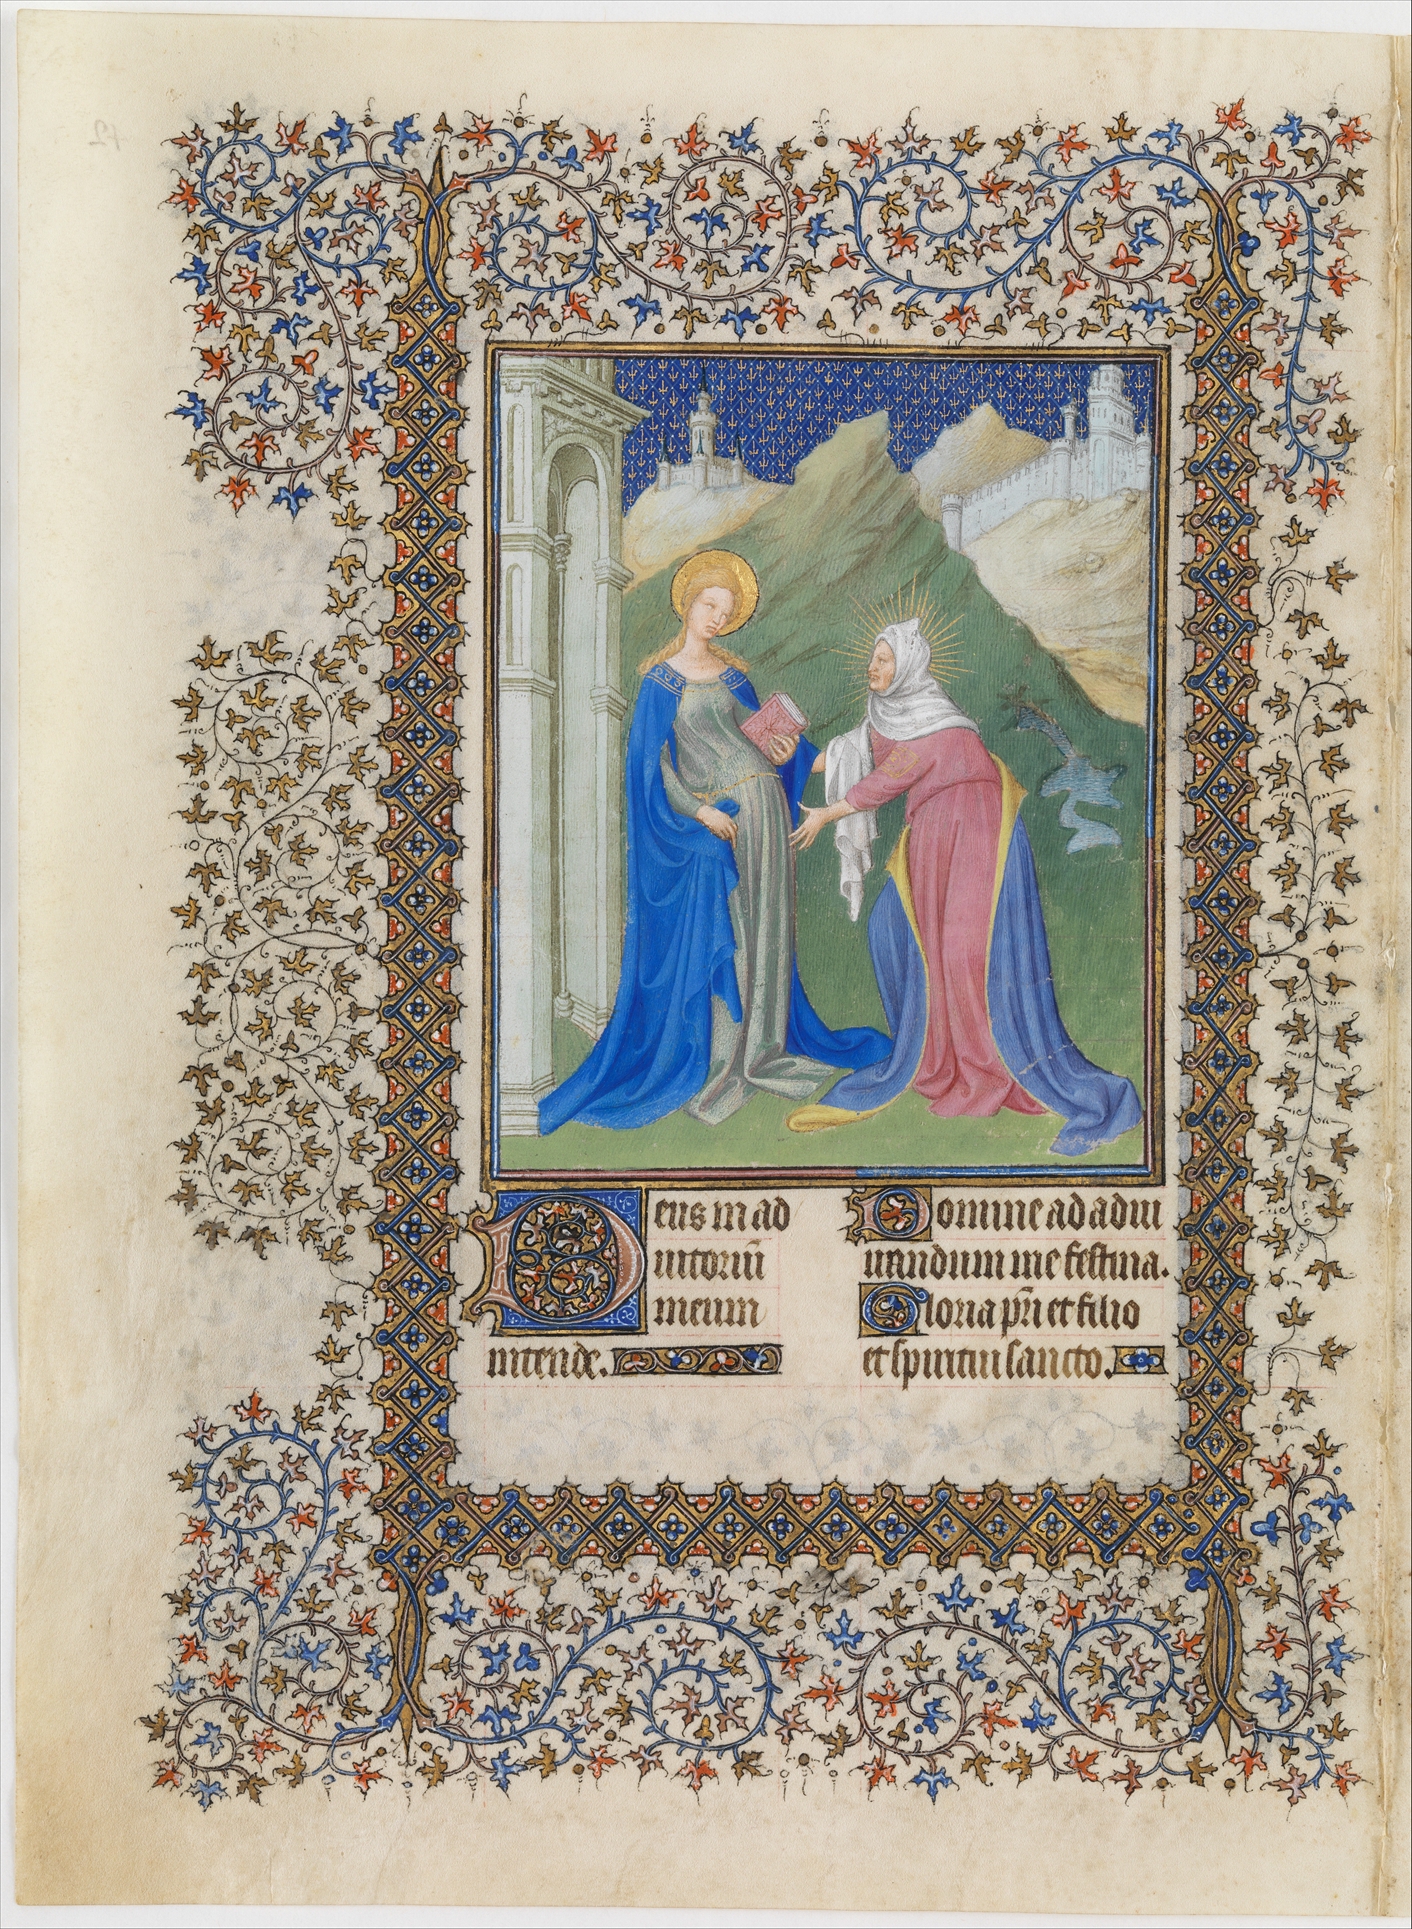 Deus in ad
iutoriū
meum
intende.
Domine ad adiu
uandum me festina.
Gloria p̄ri et filio
et spiritui sancto.